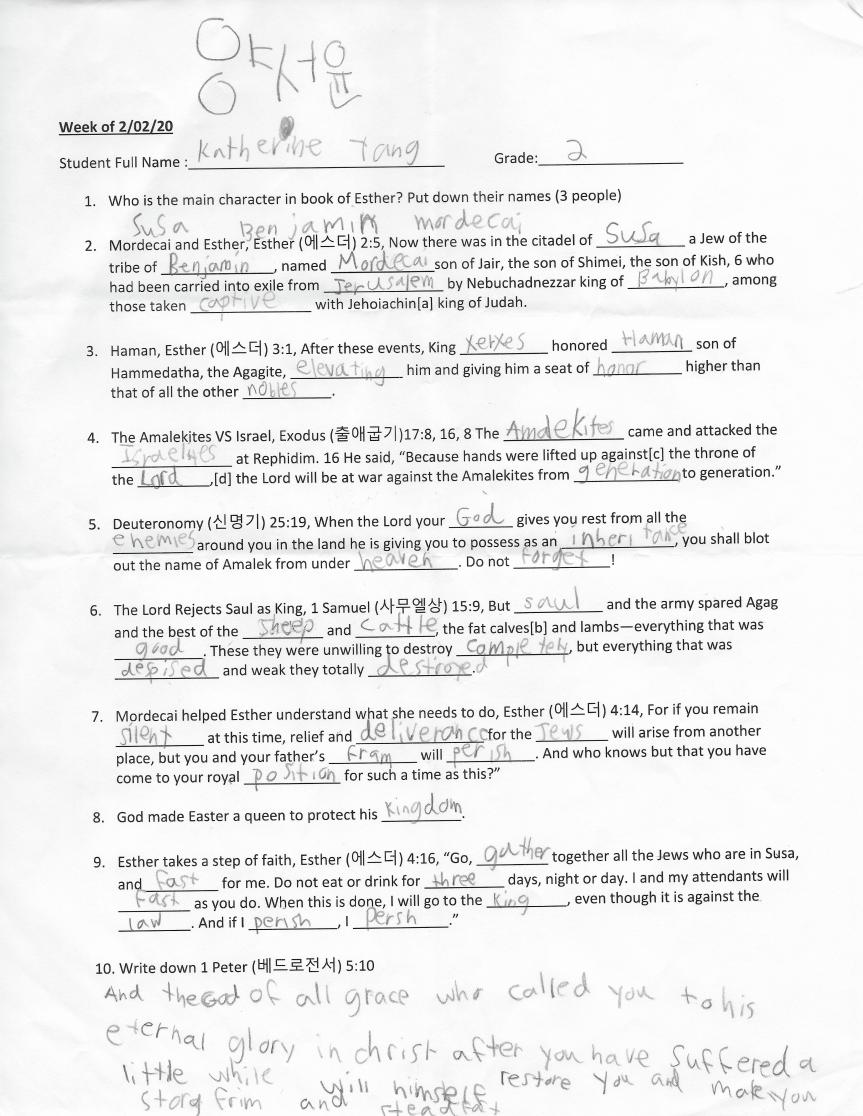 양서윤
Week of 2/02/20
Student Full Name : Katherine Yang Grade: 2
1. Who is the main character in book of Esther? Put down their names (3 people)
Susa Benjamin mordecai
2. Mordecai and Esther, Esther (에스더) 2:5, Now there was in the citadel of Susa a Jew of the
tribe of Benjamin, named Mordecai son of Jair, the son of Shimei, the son of Kish, 6 who
had been carried into exile from Jerusalem by Nebuchadnezzar king of Babylon, among
those taken captive with Jehoiachin[a] king of Judah.
3. Haman, Esther (에스더) 3:1, After these events, King Xerxes honored Haman son of
Hammedatha, the Agagite, elevating him and giving him a seat of honor higher than
that of all the other nobles.
4. The Amalekites VS Israel, Exodus (출애굽기)17:8, 16, 8 The Amalekites came and attacked the
Israelites at Rephidim. 16 He said, “Because hands were lifted up against[c] the throne of
the Lord,[d] the Lord will be at war against the Amalekites from generation to generation.”
5. Deuteronomy (신명기) 25:19, When the Lord your God gives you rest from all the
enemies around you in the land he is giving you to possess as an inheritance, you shall blot
out the name of Amalek from under heaven. Do not forget!
6. The Lord Rejects Saul as King, 1 Samuel (사무엘상) 15:9, But saul and the army spared Agag
and the best of the sheep and cattle, the fat calves[b] and lambs—everything that was
good. These they were unwilling to destroy completely, but everything that was
despised and weak they totally destroyed.
7. Mordecai helped Esther understand what she needs to do, Esther (에스더) 4:14, For if you remain
silent at this time, relief and deliverance for the Jews will arise from another
place, but you and your father’s fram will perish. And who knows but that you have
come to your royal position for such a time as this?”
8. God made Easter a queen to protect his kingdom.
9. Esther takes a step of faith, Esther (에스더) 4:16, “Go, gather together all the Jews who are in Susa,
and fast for me. Do not eat or drink for three days, night or day. I and my attendants will
fast as you do. When this is done, I will go to the king, even though it is against the
law. And if I perish, I persh.”
10. Write down 1 Peter (베드로전서) 5:10
And the God of all grace who called you to his
eternal glory in christ after you have suffered a
little while will himself restore you and make you
storg frim and steadfat